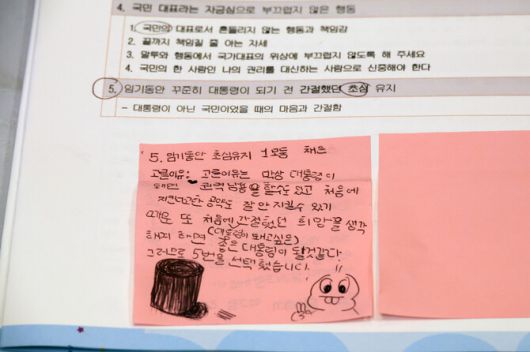 4. 국민 대표라는 자긍심으로 부끄럽지 않은 행동
1. 국민의 대표로서 흔들리지 않는 행동과 책임감
2. 끝까지 책임질 줄 아는 자세
3. 말투와 행동에서 국가대표의 위상에 부끄럽지 않도록 해 주세요
4. 국민의 한 사람인 나의 권리를 대신하는 사람으로 신중해야 한다
5. 임기동안 꾸준히 대통령이 되기 전 간절했던 초심 유지
- 대통령이 아닌 국민이었을 때의 마음과 간절함
5. 임기동안 초심유지 1모둠 채은
고른이유: 고른이유는 막상 대통령이
돼면 권력 남용을 할수도 있고 처음에
공약도 잘 안 지킬수 있기
때문 또 처음에 간절했던 희망을 생각
하며 하면 (대통령이 돼고싶은)
좋은 대통령이 될것같다.
그러므로 5번을 선택 했습니다.